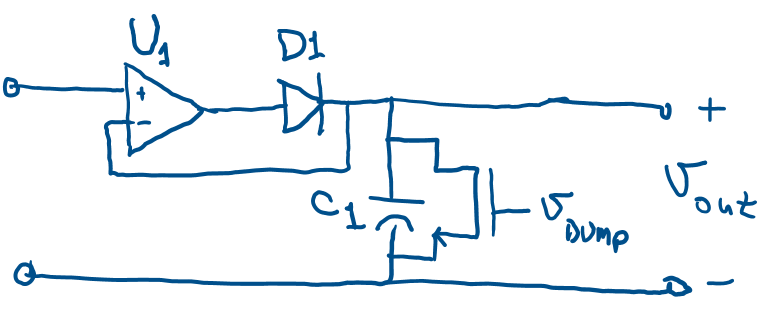 U1
D1
+
-
+
C1
VDump
Vout
-